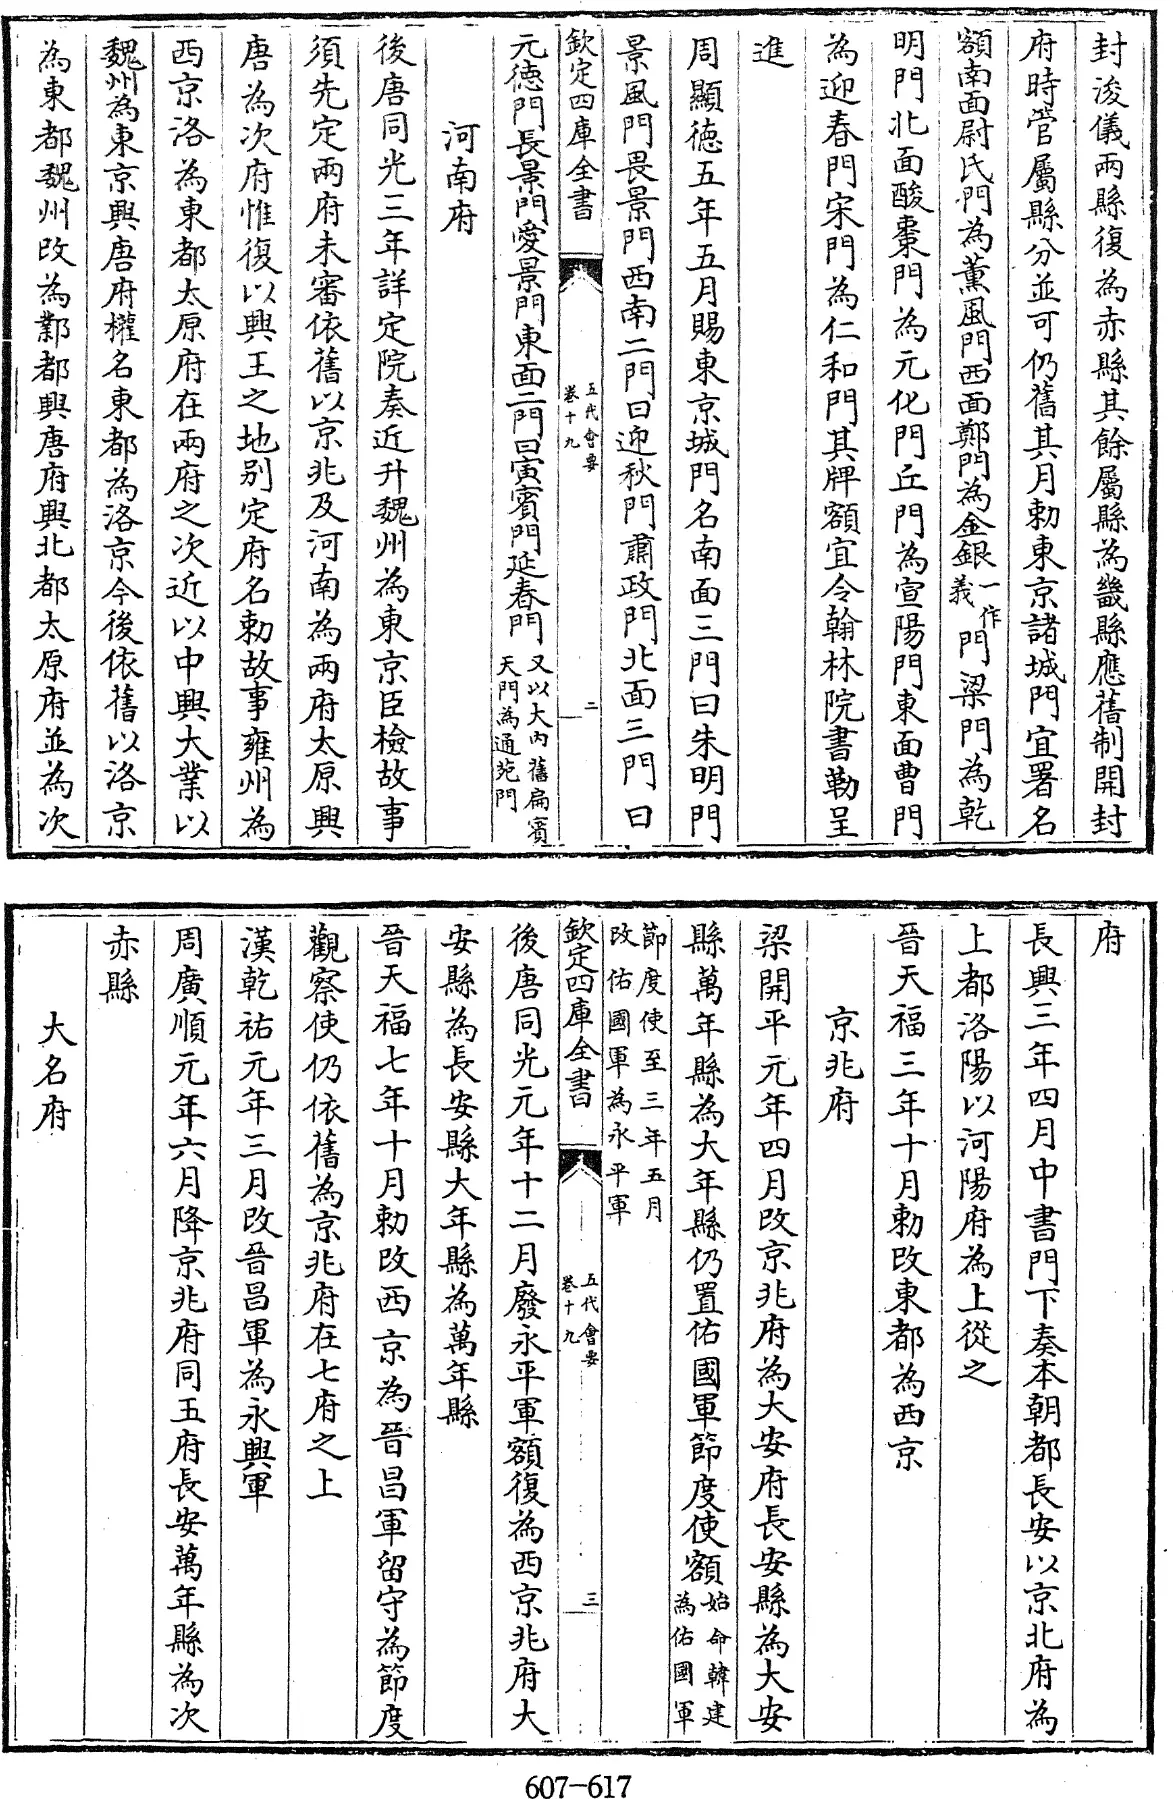 封浚儀兩縣復為赤縣其餘屬縣為畿縣應舊制開封
府時管屬縣分並可仍舊其月勅東京諸城門宜署名
額南面尉氏門為薰風門西面鄭門為金銀一作義門梁門為乾
明門北面酸棗門為元化門丘門為宣陽門東面曹門
為迎春門宋門為仁和門其牌額宜令翰林院書勒呈
進
周顯德五年五月賜東京城門名南面三門曰朱明門
景風門畏景門西南二門曰迎秋門肅政門北面三門曰
欽定四庫全書
五代會要
卷十九
二
元德門長景門愛景門東面二門曰寅賓門延春門又以大內舊扁賓天門為通苑門
河南府
後唐同光三年詳定院奏近升魏州為東京臣檢故事
須先定兩府未審依舊以京兆及河南為兩府太原興
唐為次府惟復以興王之地别定府名勅故事雍州為
西京洛為東都太原府在兩府之次近以中興大業以
魏州為東京興唐府權名東都為洛京今後依舊以洛京
為東都魏州改為鄴都興唐府興北都太原府並為次
府
長興三年四月中書門下奏本朝都長安以京北府為
上都洛陽以河陽府為上從之
晉天福三年十月勅改東都為西京
京兆府
梁開平元年四月改京兆府為大安府長安縣為大安
縣萬年縣為大年縣仍置佑國軍節度使額始命韓建為佑國軍
節度使至三年五月改佑國軍為永平軍
欽定四庫全書
五代會要
卷十九
三
後唐同光元年十二月廢永平軍額復為西京兆府大
安縣為長安縣大年縣為萬年縣
晉天福七年十月勅改西京為晉昌軍留守為節度
觀察使仍依舊為京兆府在七府之上
漢乾祐元年三月改晉昌軍為永興軍
周廣順元年六月降京兆府同五府長安萬年縣為次
赤縣
大名府
607-617